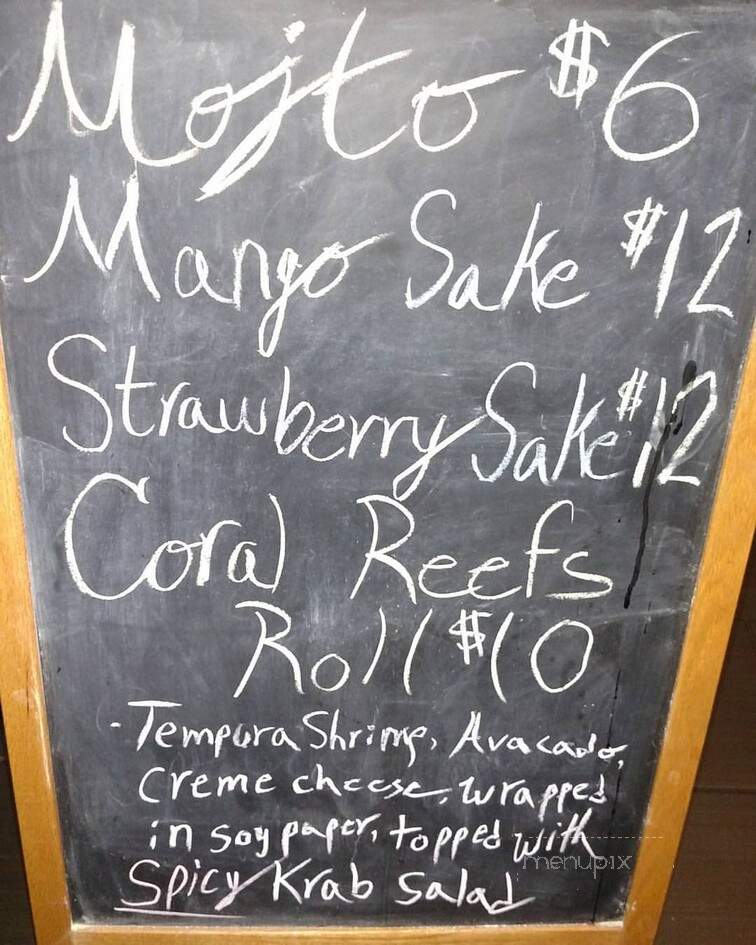 Mojto $6
Mango Sake $12
Strawberry Sake $12
Coral Reefs
Roll $10
- Tempura Shrimp, Avacado,
creme cheese, wrapped
in soy paper, topped with
menupix
Spicy Krab Salad